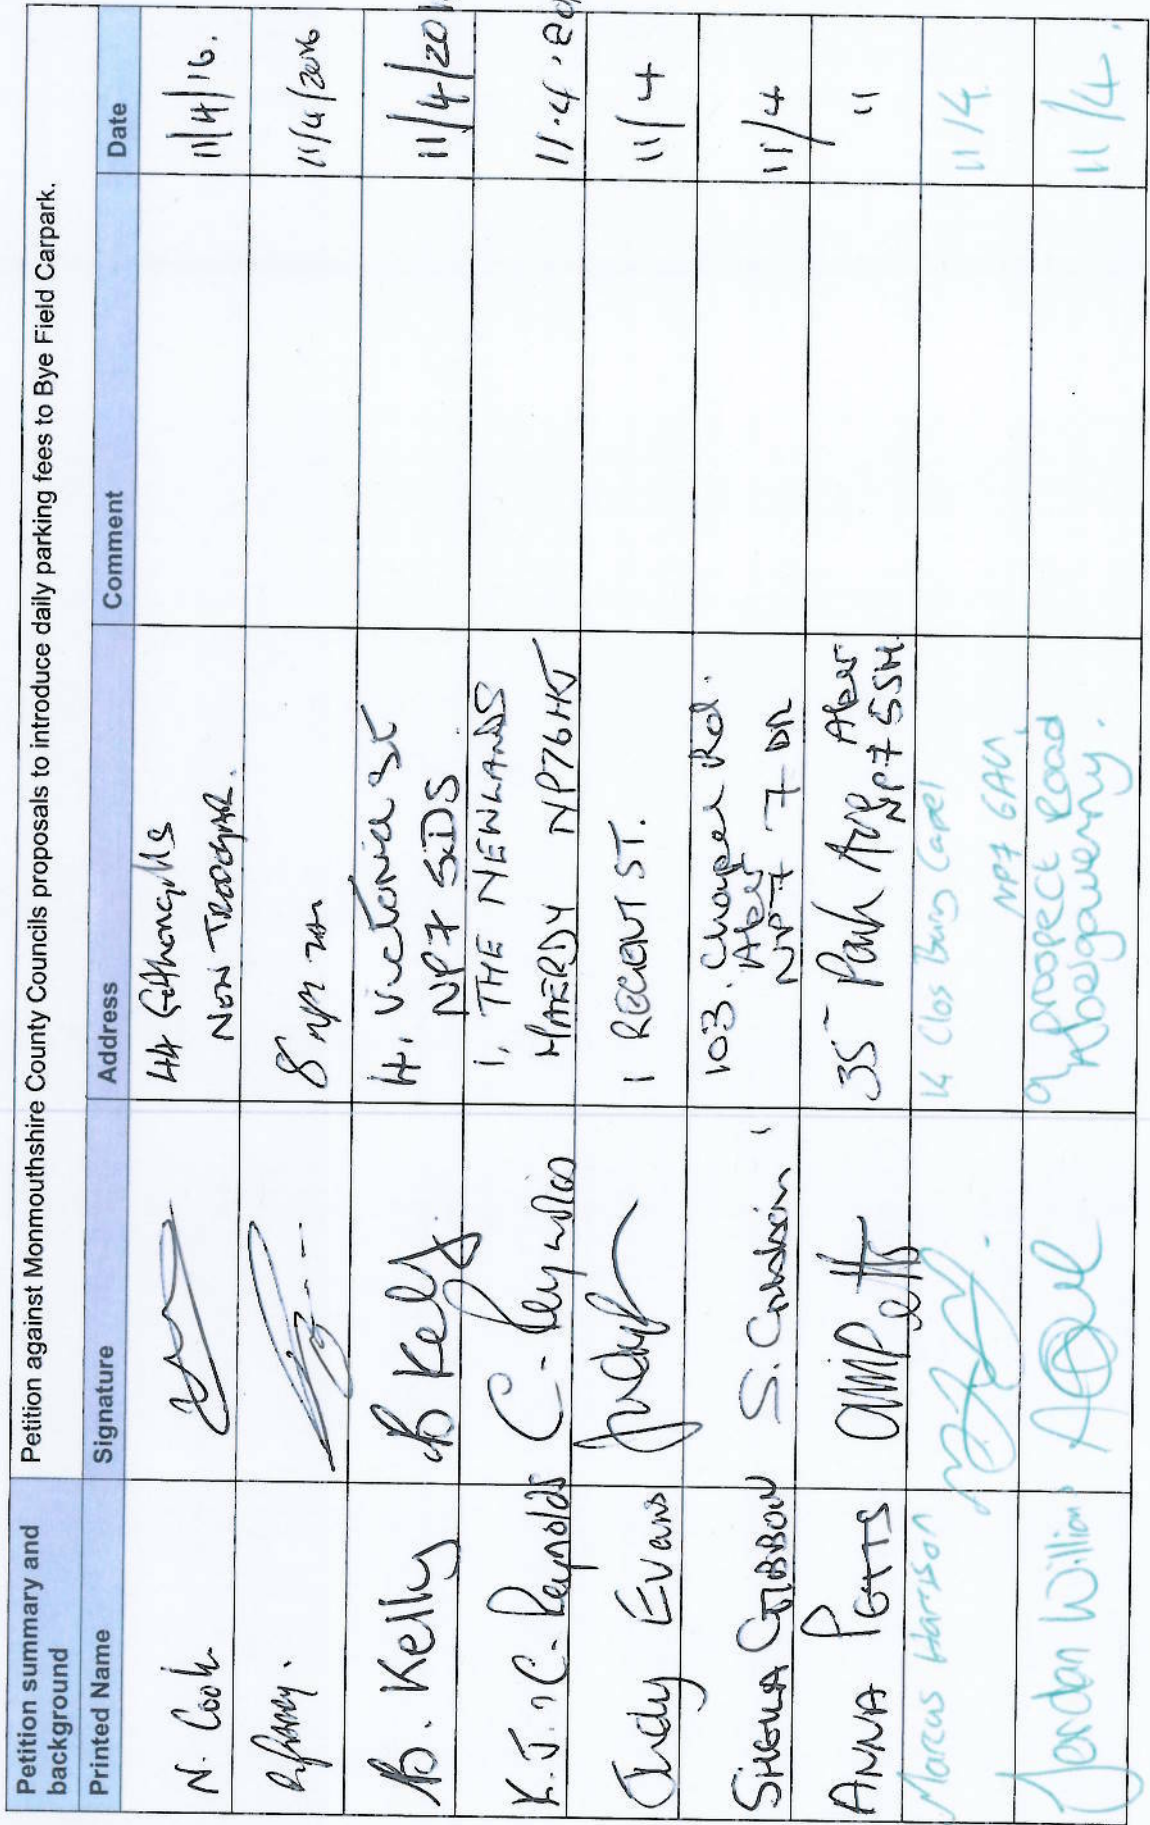 Petition summary and background
Petition against Monmouthshire County Councils proposals to introduce daily parking fees to Bye Field Carpark.
Printed Name Signature Address Comment Date
N. Cook 44 11/4/16.
8 11/4/2016
B. Kelly B Kelly 4, Victoria St
NP7 5DS 11/4/20
K.J. C. Reynolds C. Reynolds 1, THE NEWLANDS
MAERDY NP76HS 11.4.20
Judy Evans 1 REGENT ST. 11/4
SHEILA GIBBON 103. Chapel Rd.
Aber
NP7 7DR 11/4
ANNA POTTS 35 Park Aber
NP7 5SH "
Marcus Harrison 14 Clos
NP7 11/4
Jordan Williams 9 prospect Road
Abergavenny. 11/4.